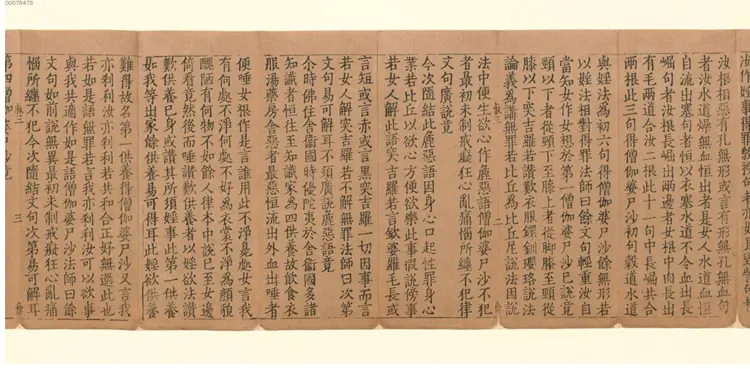 汝根相惡有孔無形或言有形無孔無血句
者汝水道無血恒出者是女人水道血恒
自流出塞句者恒以衣塞水道不令血出長
崛句者汝根長崛出兩邊者女根中肉長出
有毛兩道合汝二根此十一句中長崛共合
兩根此三句得僧伽婆尸沙初句穀道水道
與婬法為初六句得僧伽婆尸沙餘無形若
以婬法相對得罪法師曰餘文句輕重汝自
當知女作女想於第一僧伽婆尸沙已說竟
頸以下者從頸下至膝上者從脚膝至頸從
膝以下突吉羅若讚歎衣服鐶釧瓔珞說法
論義為講無罪若比丘為比丘尼說法因說
法中便生欲心作麁惡語僧伽婆尸沙不犯
者最初未制戒癡狂心亂痛惱所纏不犯律
文句廣說竟
今次隨結此麁惡語因身心口起性罪身心
業若比丘以欲心方便欲樂此事假說傍事
若女人解此語突吉羅若言欽婆羅毛長或
言短或言赤或言黑突吉羅一切因事而言
若女人解突吉羅若不解無罪法師曰次第
文句易可解耳不須廣說麁惡語竟
介時佛住舍衞國時優陀夷於舍衞國多諸
知識者恒往至知識家為四供養故飲食衣
服湯藥房舍惡者最惡恒流出外血出唾者
便唾女根作是言誰用此不淨臭處女言我
有何處不淨何處不好為衣裳不淨為顏貌
醜陋有何物不如餘人律本中說已至女邊
倚看竟然後而唾讚歎供養者以婬欲法讚
歎供養已身或讚其所須婬事此第一供養
如我等出家餘供養易可得耳此婬欲供養
難得故名第一供養得僧伽婆尸沙又言我
亦利利汝亦利利若共和合正好無過此也
若如是語無罪若言我亦利利汝可以欲事
與我共通作如是語僧伽婆尸沙法師曰餘
文句如前說無異最初未制戒癡狂心亂痛
惱所纏不犯今次隨結文句次第易可解耳
第四僧伽婆尸沙竟
二
三